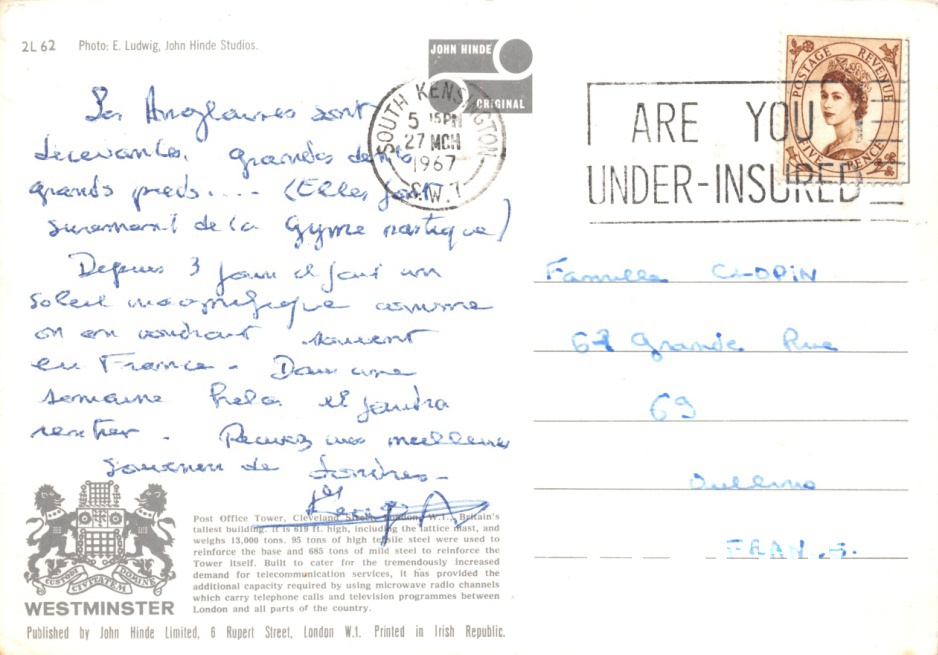 2L 62 Photo: E. Ludwig, John Hinde Studios.
JOHN HINDE
ORIGINAL
SOUTH KENSINGTON
5 15PM
27 MCH
1967
S.W.7
POSTAGE REVENUE
FIVE PENCE
ARE YOU
UNDER-INSURED
Les Anglaises sont
decevantes, grandes dents
grands pieds.... (Elles font
surement de la Gymnastique)
Depuis 3 jours il fait un
soleil magnifique comme
on en voudrait souvent
en France - Dans une
semaine helas il faudra
rentrer. Recevez nos meilleurs
souvenirs de Londres -
Famille CHOPIN
Grande Rue
69
Oullins
FRANCE
CUSTODI CIVITATEM DOMINE
WESTMINSTER
Post Office Tower, Cleveland Street, London, W.1., Britain's
tallest building. It is 619 ft. high, including the lattice mast, and
weighs 13,000 tons. 95 tons of high tensile steel were used to
reinforce the base and 685 tons of mild steel to reinforce the
Tower itself. Built to cater for the tremendously increased
demand for telecommunication services, it has provided the
additional capacity required by using microwave radio channels
which carry telephone calls and television programmes between
London and all parts of the country.
Published by John Hinde Limited, 6 Rupert Street, London W.1. Printed in Irish Republic.